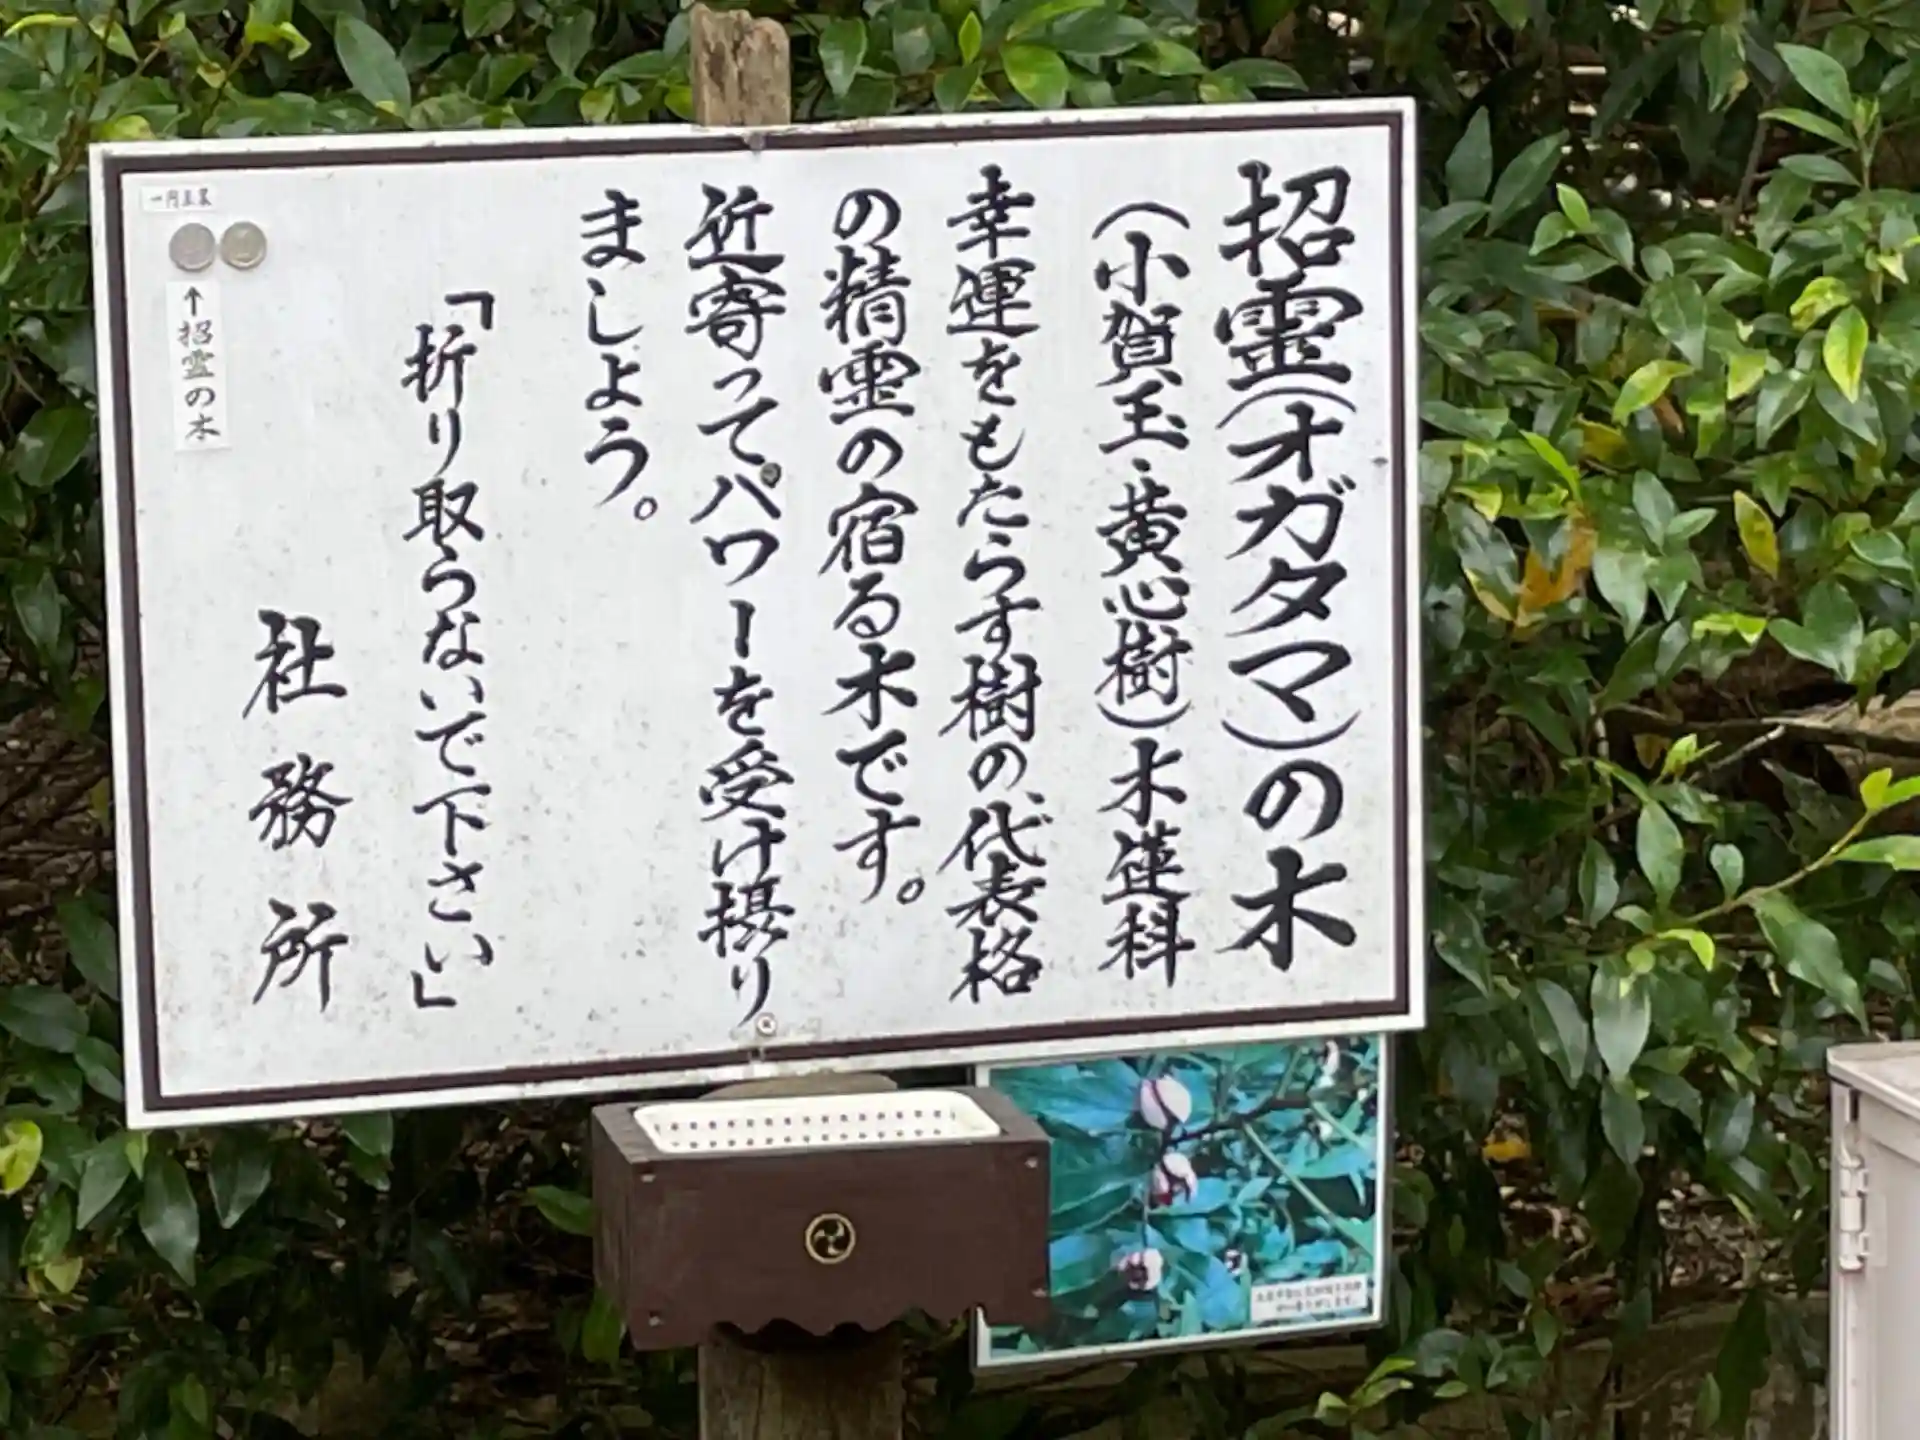 招霊(オガタマ)の木
(小賀玉・黄心樹)木蓮科
幸運をもたらす樹の代表格
の精霊の宿る木です。
近寄ってパワーを受け摂り
ましょう。
「折り取らないで下さい」
社務所
一円玉
↑招霊の木